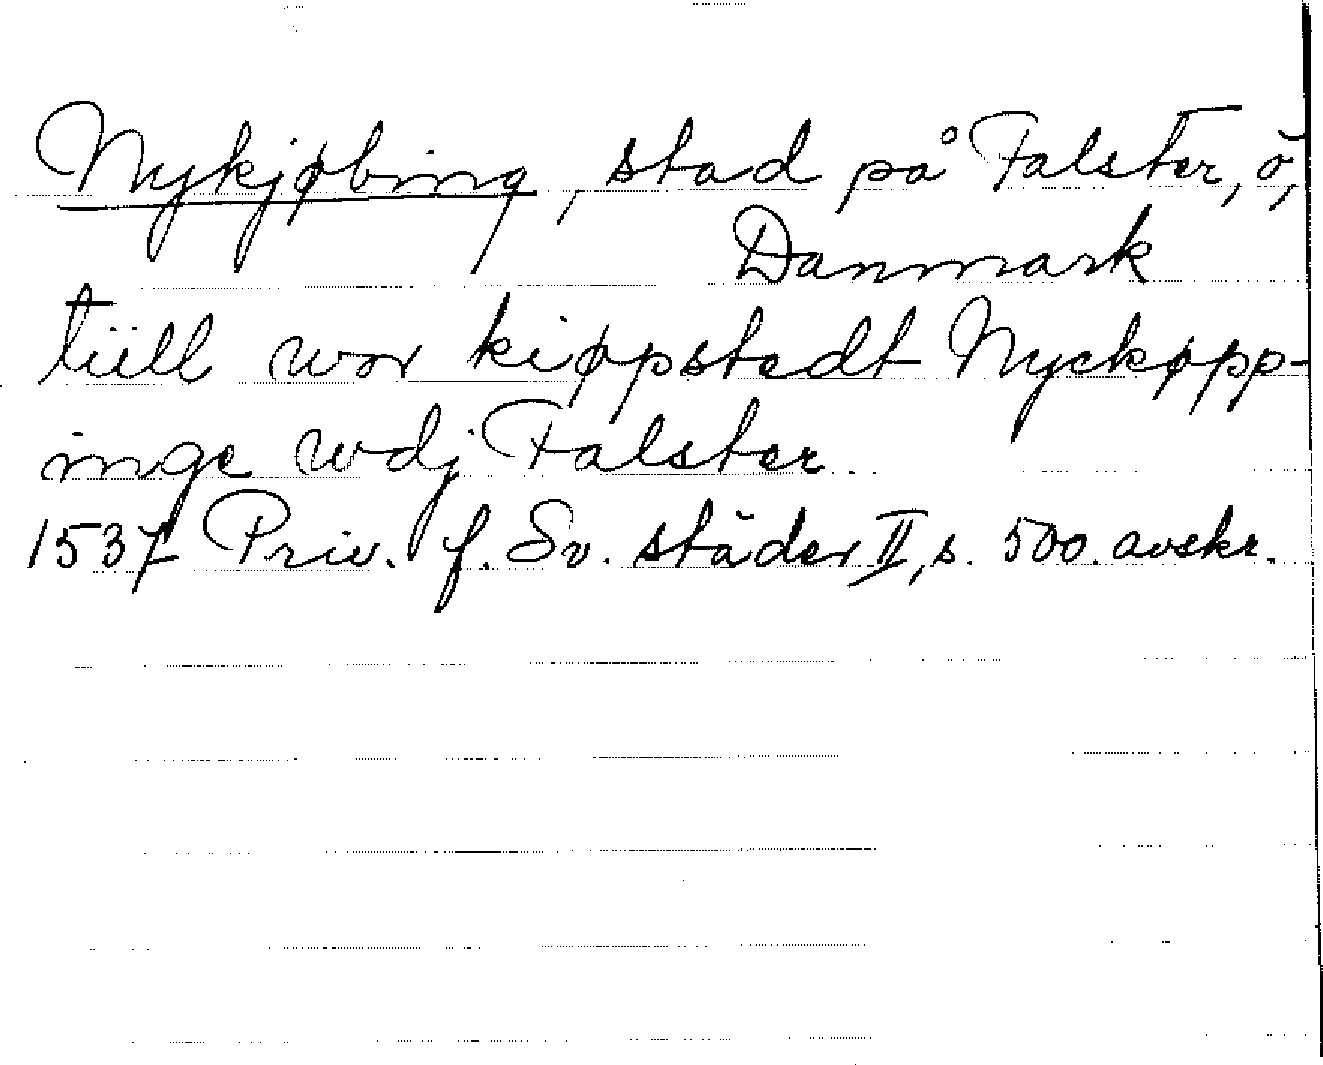 Nykjøbing, stad på Falster, ö,
Danmark
tüll wor kiøpstedt Nyckøpp-
inge wdj Falster
1537 Priv. f. Sv. städer II, s. 500. avskr.